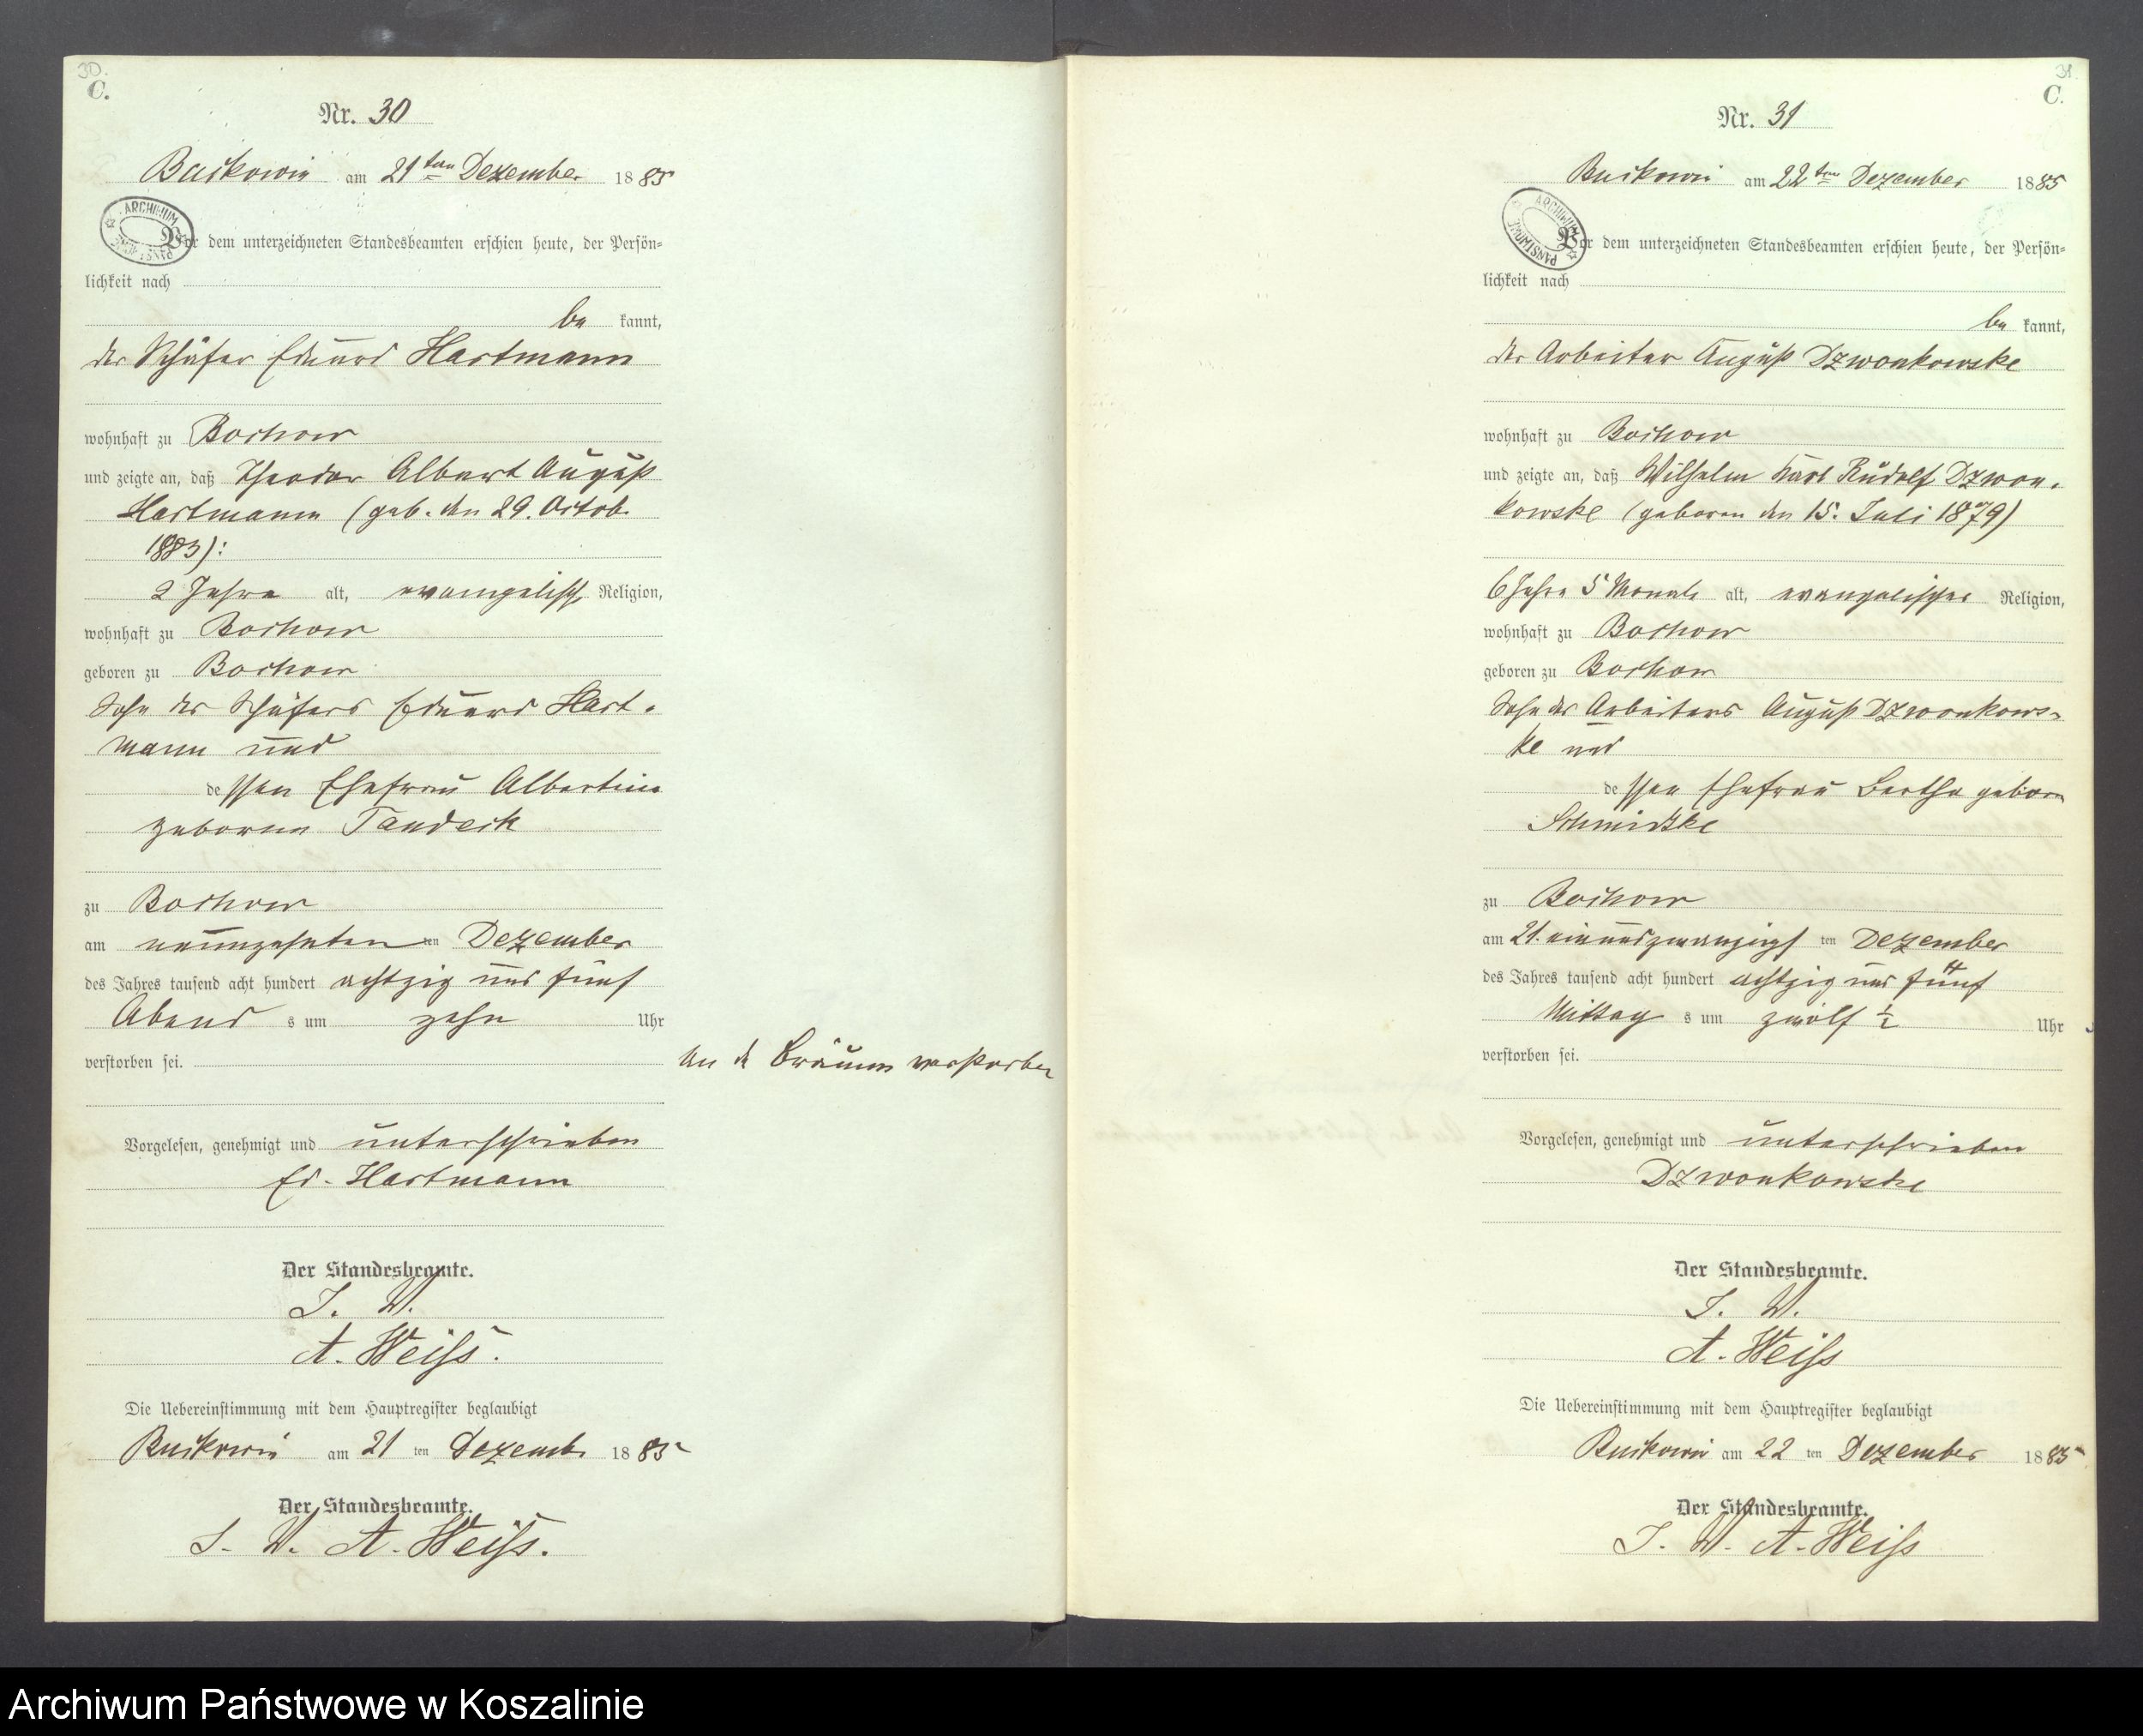 30.
C.
Nr. 30
Buckowin am 21ten Dezember 1885
ARCHIWUM PAŃSTWOWE
Vor dem unterzeichneten Standesbeamten erschien heute, der Persön=
lichkeit nach
be kannt,
der Schäfer Eduard Hartmann
wohnhaft zu Bochow
und zeigte an, daß Theodor Albert August
Hartmann (geb. den 29. Octob.
1883):
2 Jahre alt, evangelisch Religion,
wohnhaft zu Bochow
geboren zu Bochow
Sohn des Schäfers Eduard Hart-
mann und
dessen Ehefrau Albertine
geborene Tandeck
zu Bochow
am neunzehnten ten Dezember
des Jahres tausend acht hundert achtzig und fünf
Abend s um zehn Uhr
verstorben sei.
An d Bräune verstorben
Vorgelesen, genehmigt und unterschrieben
Ed. Hartmann
Der Standesbeamte.
I. V.
A. Weiss.
Die Uebereinstimmung mit dem Hauptregister beglaubigt
Buckowin am 21 ten Dezemb. 1885
Der Standesbeamte.
I. V. A. Weiss.
31.
C.
Nr. 31
Buckowin am 22ten Dezember 1885
ARCHIWUM PAŃSTWOWE
Vor dem unterzeichneten Standesbeamten erschien heute, der Persön=
lichkeit nach
be kannt,
der Arbeiter August Dzwonkowske
wohnhaft zu Bochow
und zeigte an, daß Wilhelm Karl Rudolf Dzwon-
kowske (geboren den 15. Juli 1879)
6 Jahre 5 Monate alt, evangelischer Religion,
wohnhaft zu Bochow
geboren zu Bochow
Sohn des Arbeiters August Dzwonkows-
ke und
dessen Ehefrau Bertha geborn
Schmidtke
zu Bochow
am 21. einundzwanzigst ten Dezember
des Jahres tausend acht hundert achtzig und fünf
Mittag s um zwölf ½ Uhr
verstorben sei.
Vorgelesen, genehmigt und unterschrieben
Dzwonkowske
Der Standesbeamte.
I. V.
A. Weiss
Die Uebereinstimmung mit dem Hauptregister beglaubigt
Buckowin am 22 ten Dezember 1885
Der Standesbeamte.
I. V. A. Weiss
Archiwum Państwowe w Koszalinie